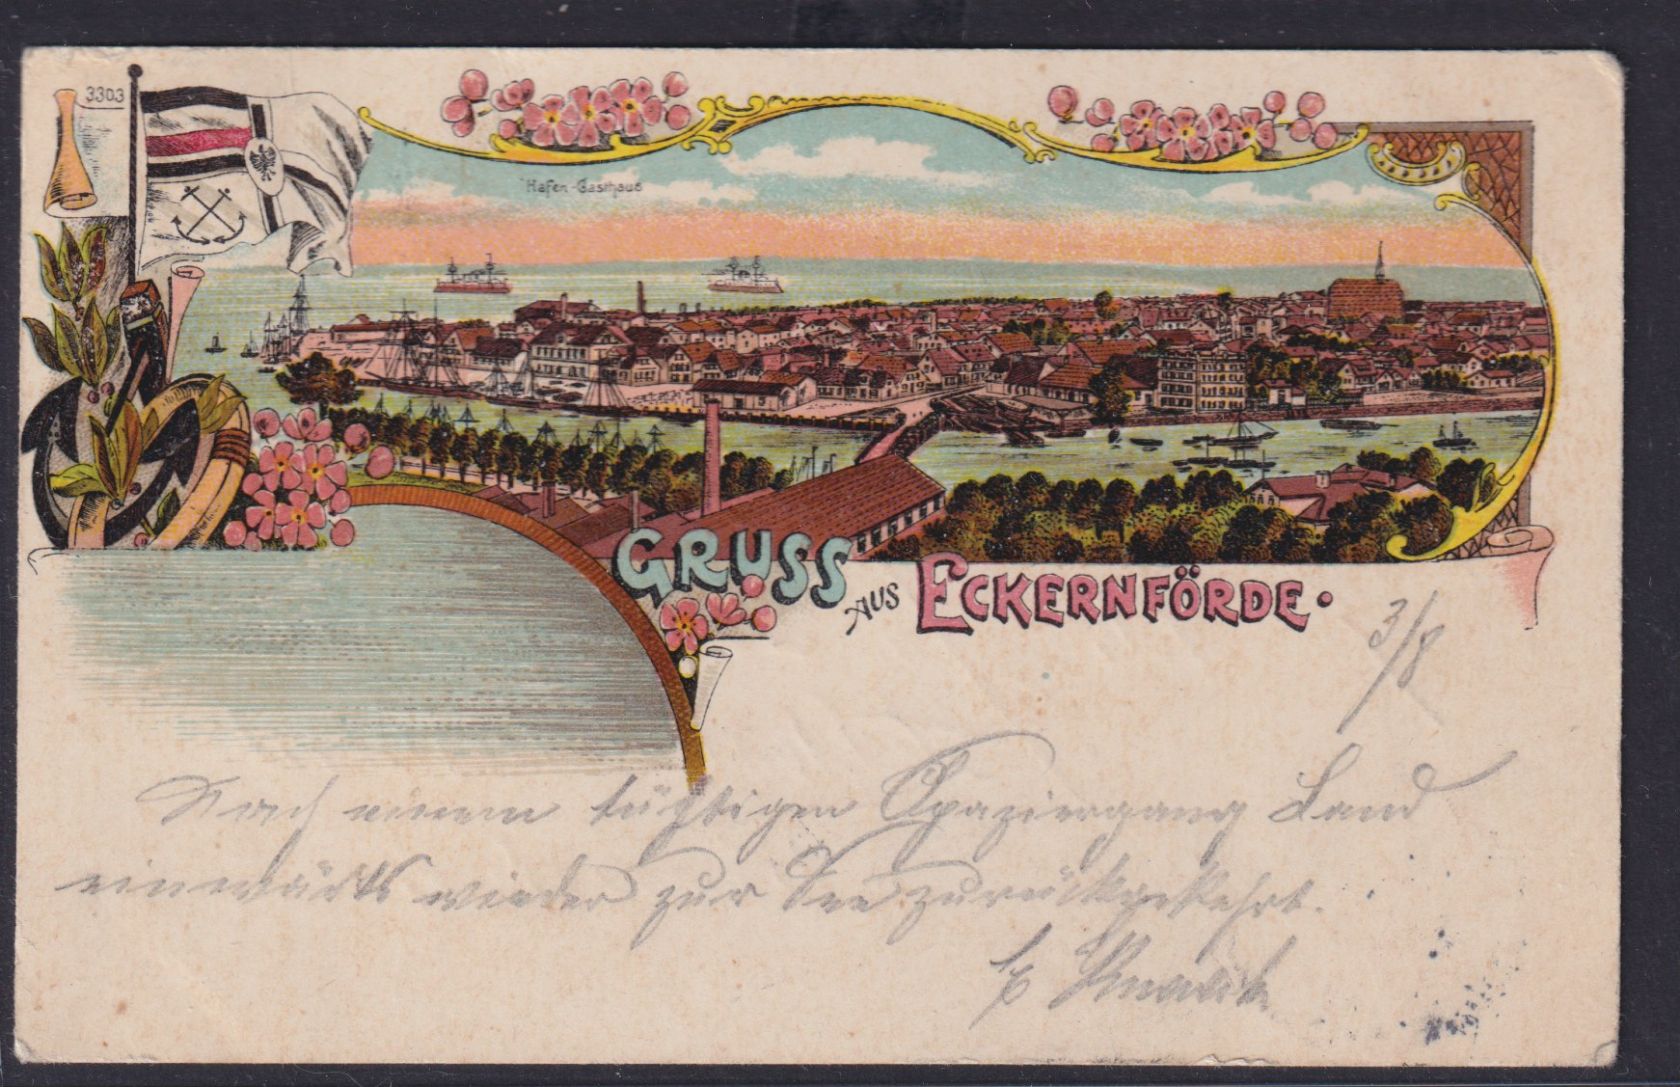 3303
Hafen-Gasthaus
GRUSS
AUS ECKERNFÖRDE.
3/8
Nach einem tüchtigen Spaziergang Land
einwärts wieder zur See zurückgekehrt.